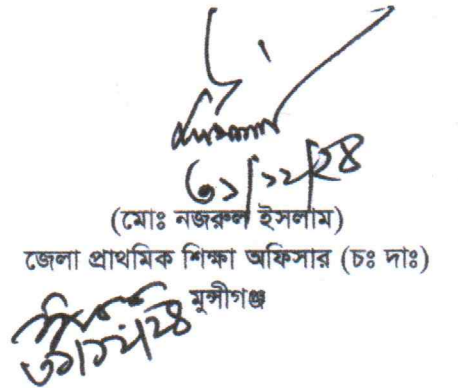 ৩১/১২/২৪
(মোঃ নজরুল ইসলাম)
জেলা প্রাথমিক শিক্ষা অফিসার (চঃ দাঃ)
মুন্সীগঞ্জ
৩১/১২/২৪